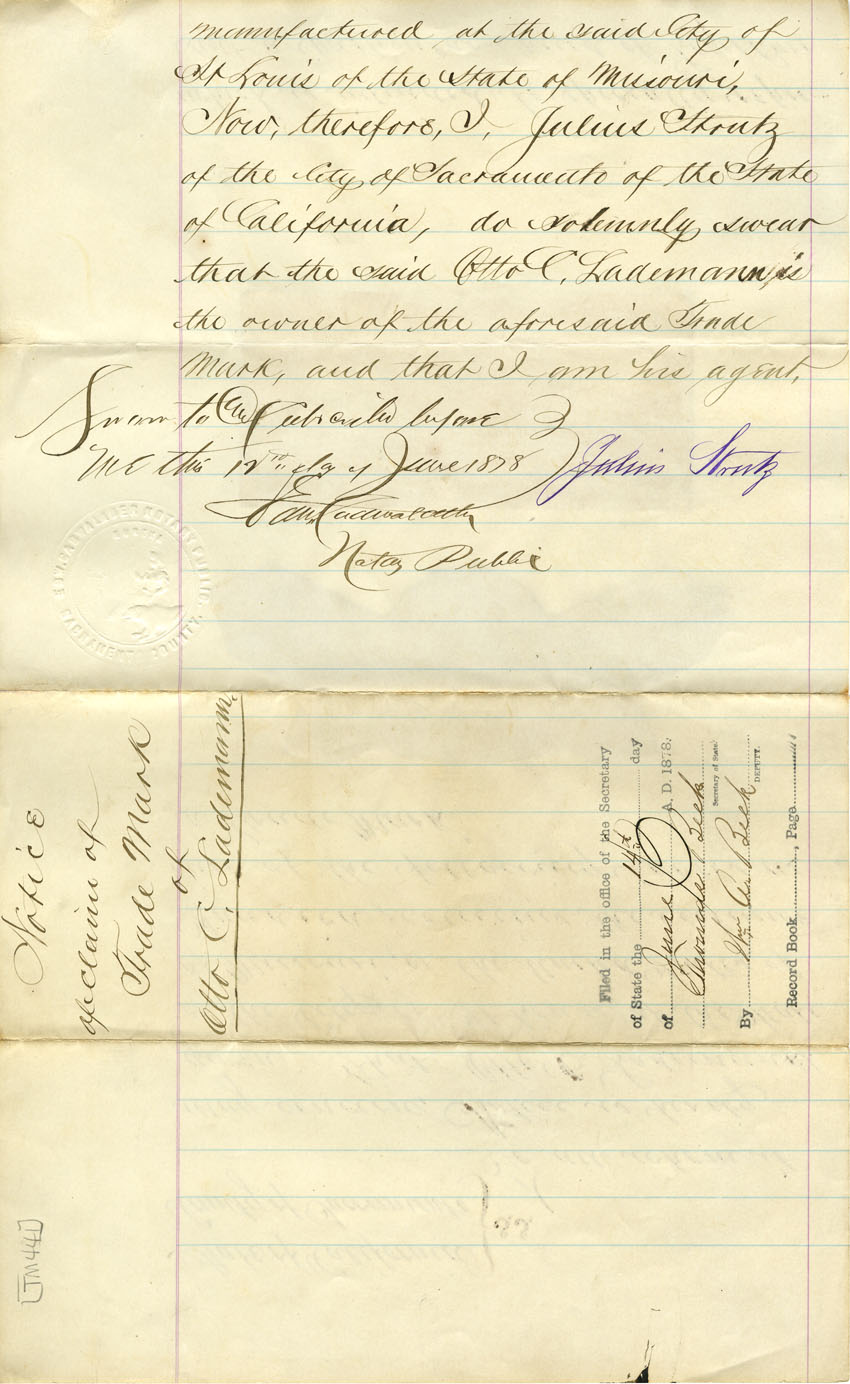 manufactured at the said City of
St Louis of the State of Missouri,
Now, therefore, I, Julius Strutz
of the City of Sacramento of the State
of California, do solemnly swear
that the said Otto C. Lademann, is
the owner of the aforesaid Trade
Mark, and that I am his agent.
Sworn to and Subscribed before
me this 12th day of June 1878
Julius Strutz
Edw. Cadwalader
Notary Public
EDW. CADWALADER NOTARY PUBLIC
SACRAMENTO COUNTY.
Notice
of claim of
Trade Mark
of
Otto C. Lademann.
Filed in the office of the Secretary
of State the 14th day
of June A. D. 1878.
Thomas Beck
Secretary of State
By Wm A. Beck
DEPUTY.
Record Book, Page
TM441